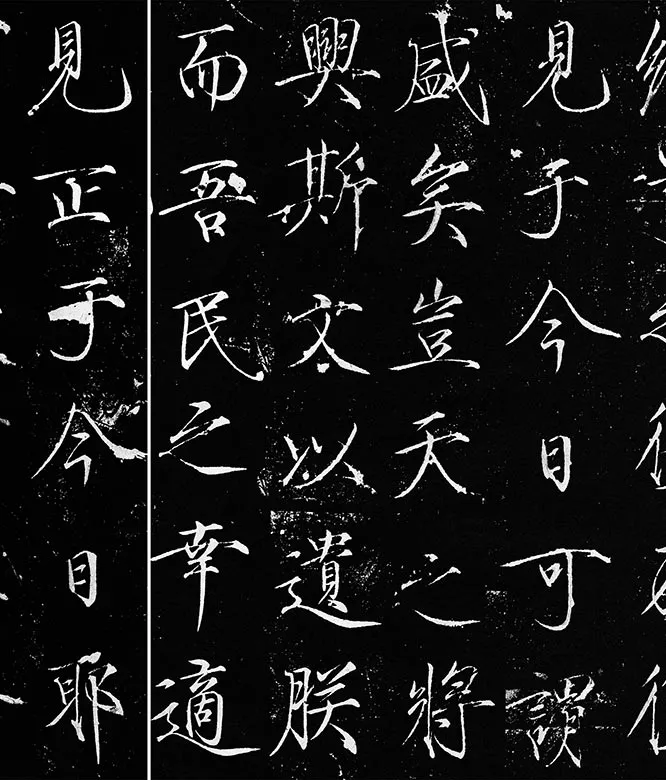 見于今日可謂
盛矣豈天之將
興斯文以遺朕
而吾民之幸適
見正于今日耶